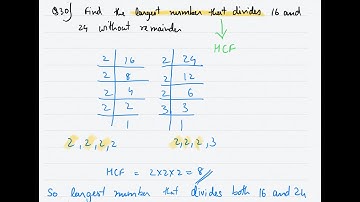 Q30) Find the largest number that divides 16 and
24 without remainder
HCF
2 16
2 8
2 4
2 2
1
2 24
2 12
2 6
3 3
1
2, 2, 2, 2
2, 2, 2, 3
HCF = 2x2x2 = 8
So largest number that divides both 16 and 24